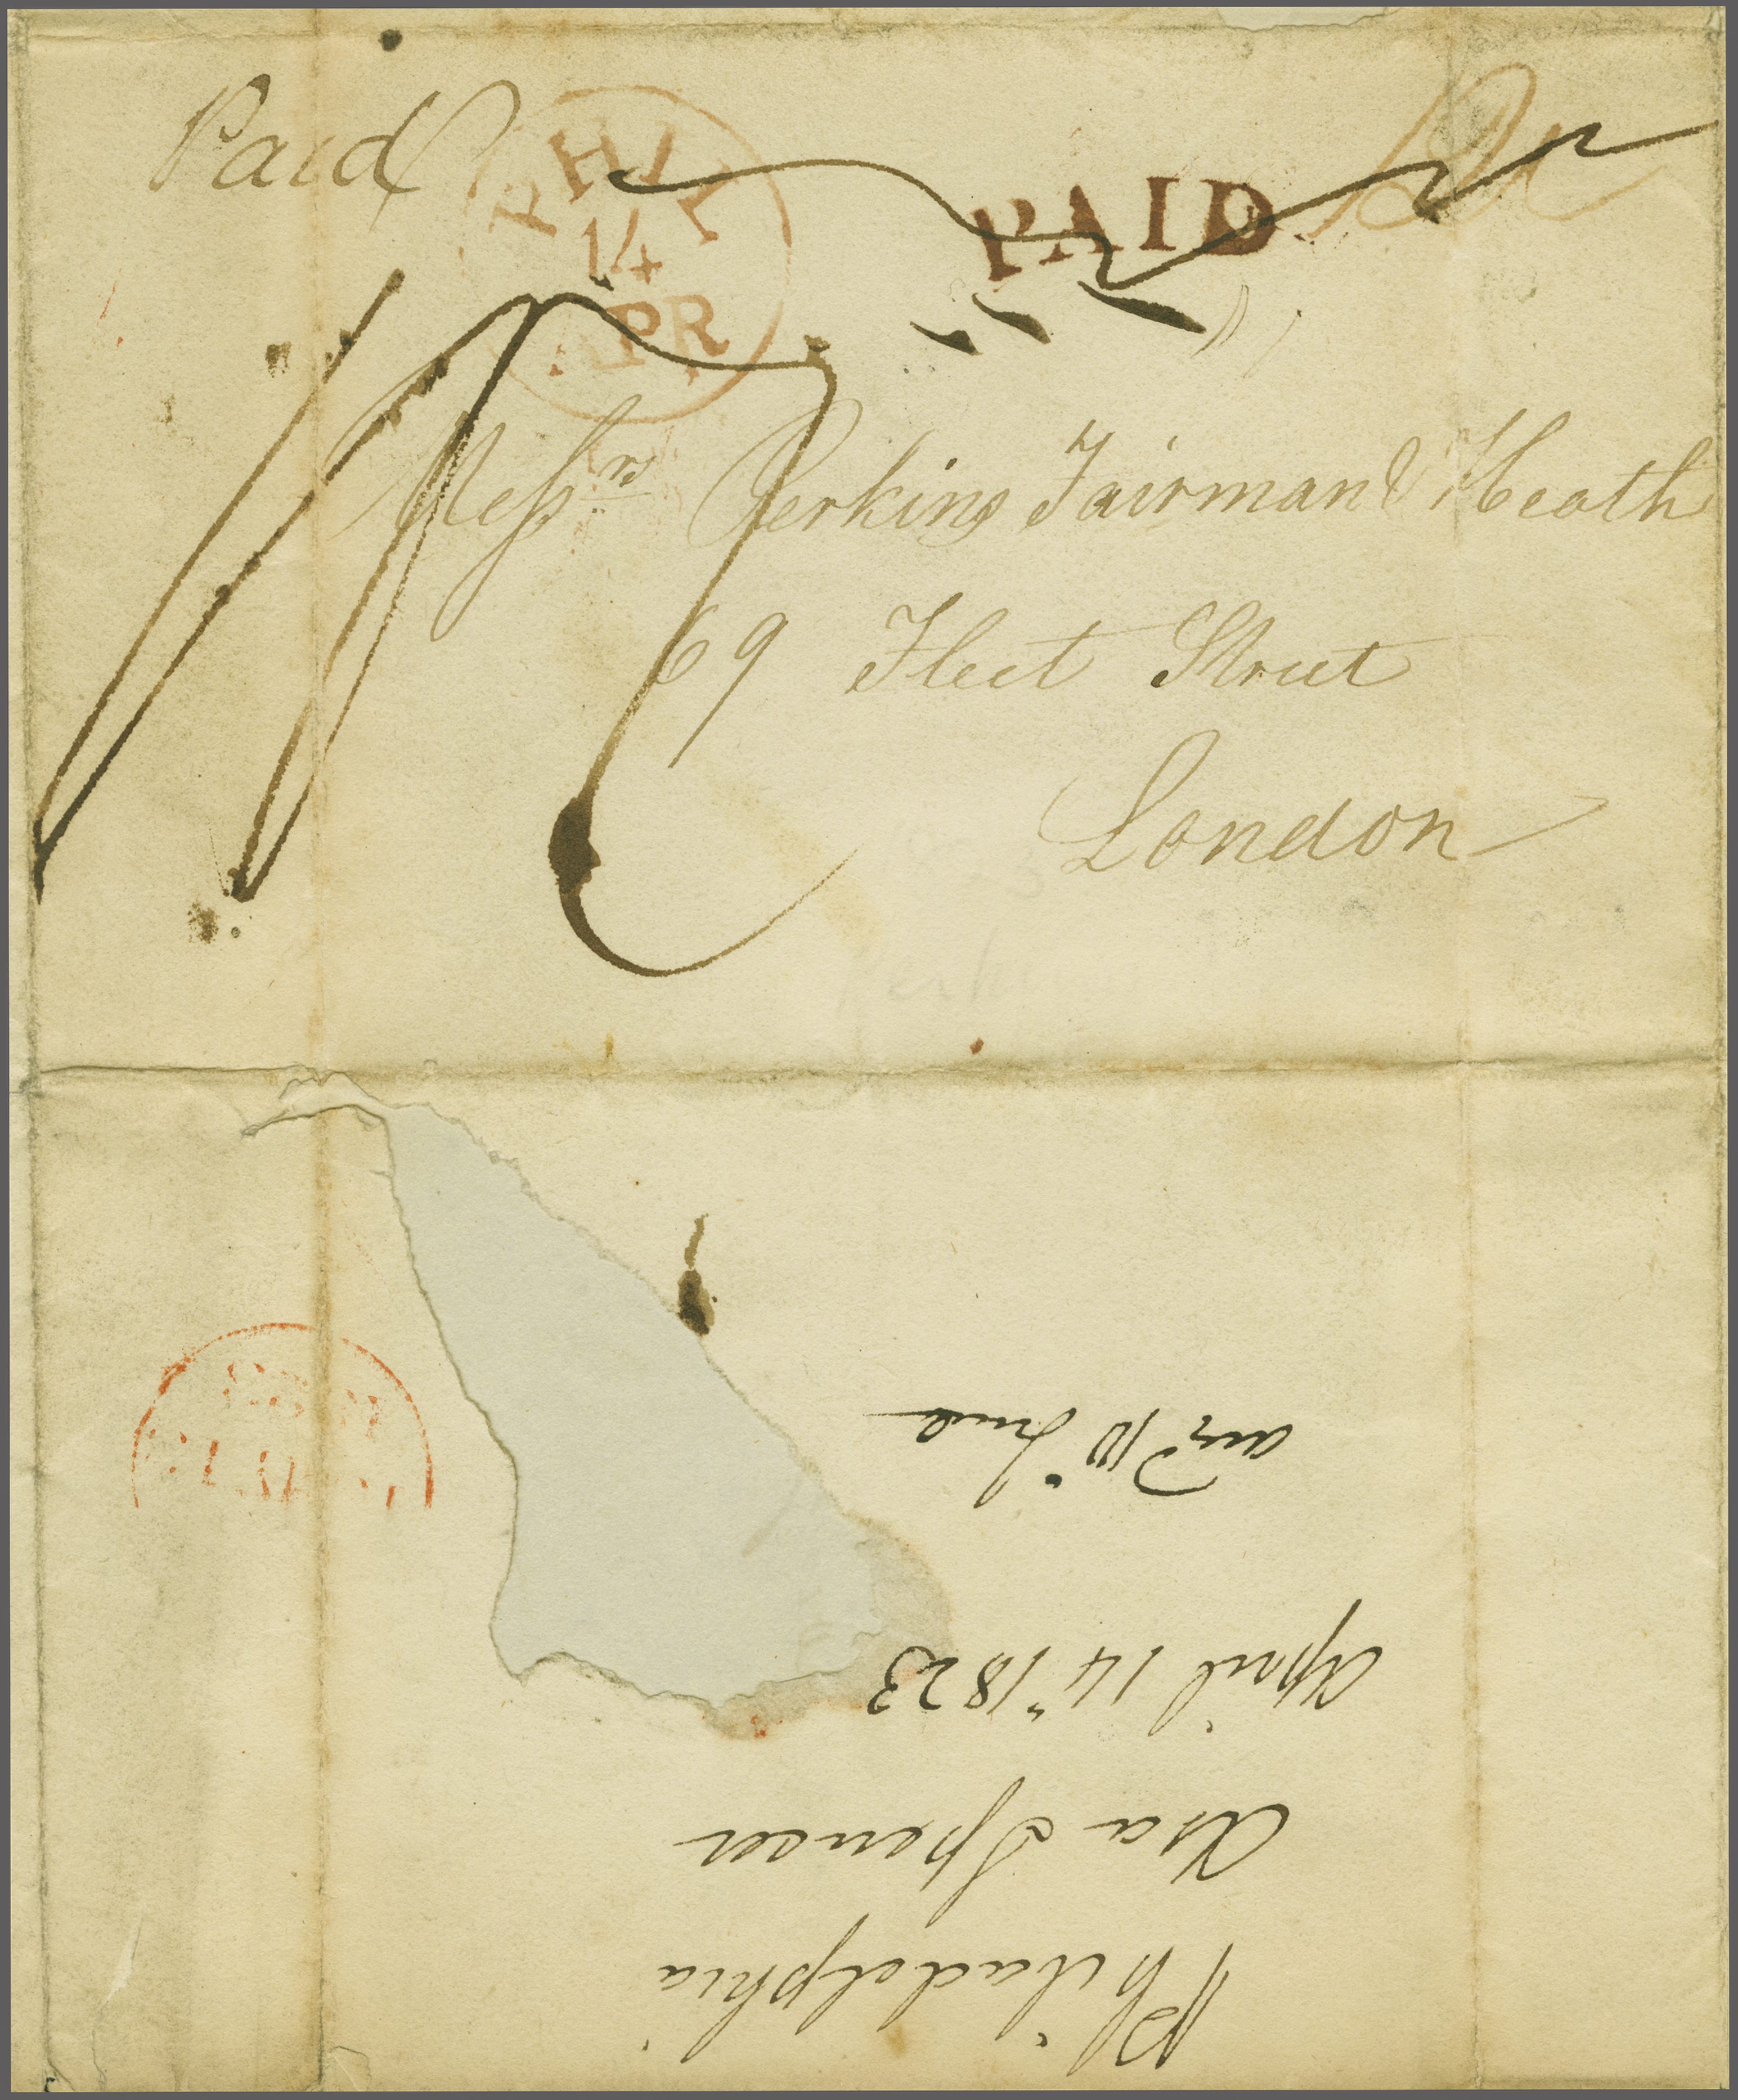 Paid
PHIL
14
APR
PAID
Messrs Perkins Fairman & Heath
69 Fleet Street
London
Philadelphia
Asa Spencer
April 14" 1823
10 June